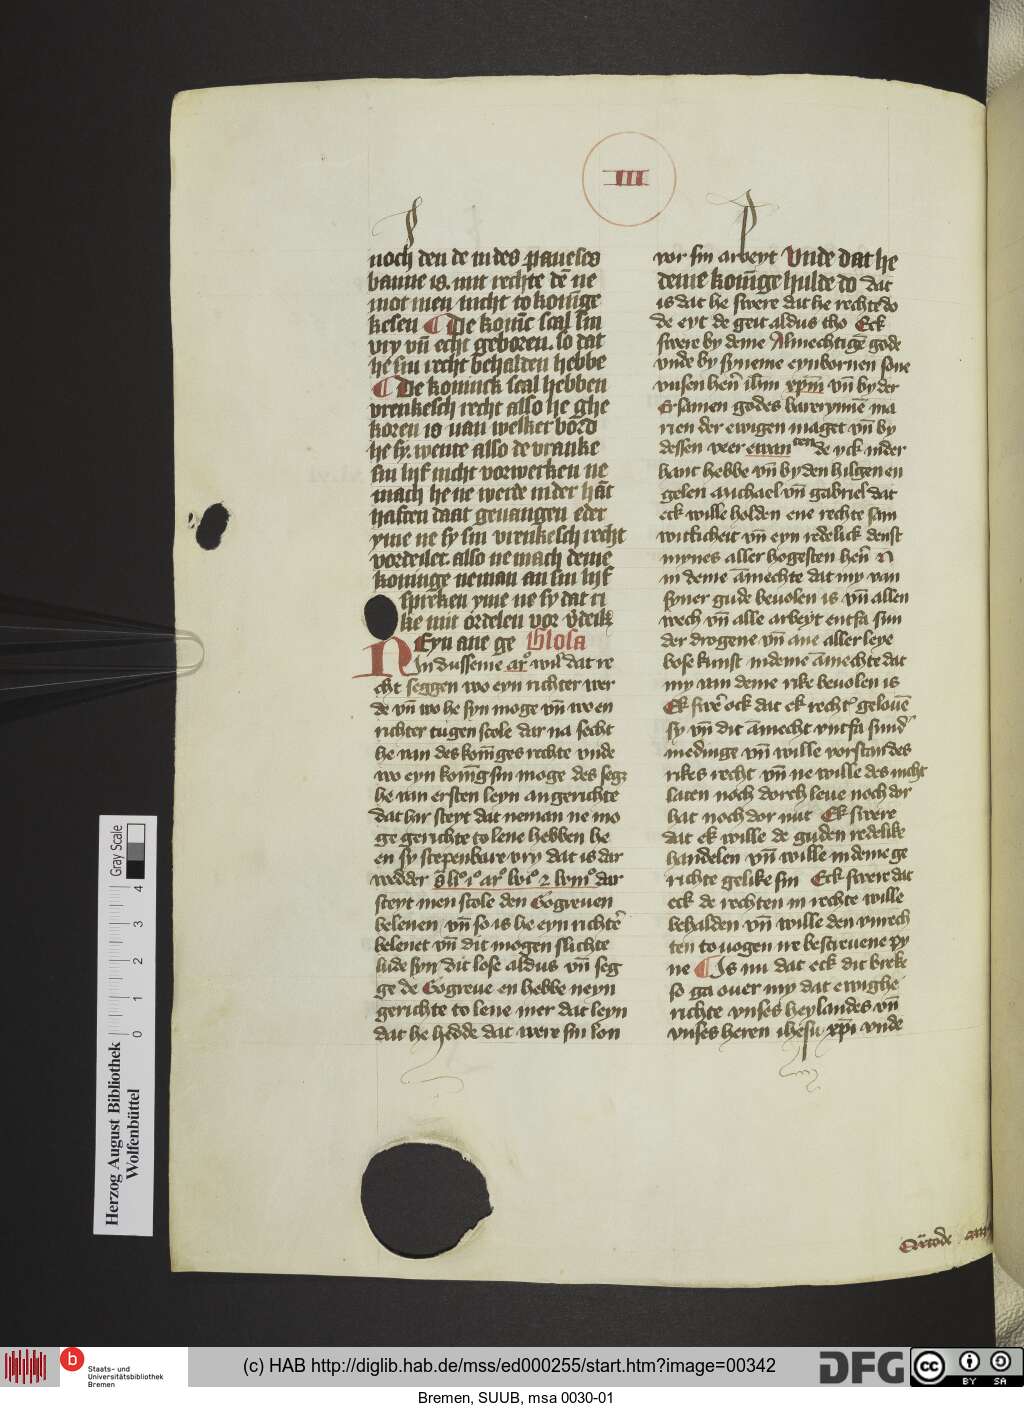 III
noch den de in des paueses
banne is. mit rechte dē ne
mot men nicht to konīge
kesen De konīc scal sin
vry vn̄ echt geboren. so dat
he sin recht behalden hebbe
De koninck scal hebben
vrenkesch recht also he ghe
koren is van welker bord
he sy. wente also de vranke
sin lijf nicht vorwerken ne
mach he ne werde in der hāt
haften daat geuangen eder
yme ne sy sin vrenkesch recht
vordeilet. also ne mach deme
koninge neman an sin lijf
spreken yme ne sy dat ri
ke mit ordelen vor
Neyn ane ge Glosa
In dusseme ar° dat re
cht seggen wo eyn richter wer
de vn̄ wo he syn moge vn̄ wo en
richter tugen scole dar na secht
he van des konīges rechte vnde
wo eyn konīg sin moge des seg
he van ersten leyn an gerichte
dat hir steyt dat neman ne mo
ge gerichte to lene hebben he
en sy scepenbare vry dat is dar
wedder ar° dar
steyt men scole den Gogreuen
belenen vn̄ so is he eyn richter
belenet vn̄ dit mogen slichte
lude syn dit lose aldus vn̄ seg
ge de Gogreue en hebbe neyn
gerichte to lene mer dat leyn
dat he hedde dat were sin lon
vor sin arbeyt Vnde dat he
deme konīge hulde do dat
is dat he swere dit he rechte do
de eyt de geit aldus tho Eck
swere by deme Almechtigē gode
vnde by syneme eynbornen sone
vnsen hern̄ ihm xpm̄ vn̄ by der
Ersamen godes barerynnē ma
rien der ewigen maget vn̄ by
dessen veer ewan ten de yck in der
hant hebbe vn̄ by den hilgen en
gelen Michael vn̄ gabriel dat
eck wille holden ene rechte sam
witticheit vn̄ eyn redelick denst
mynes aller hogesten hern̄
in deme āmechte dat my van
syner gude beuolen is vn̄ allen
wech vn̄ alle arbeyt entfa sun
der drogene vn̄ ane aller leye
bose kunst in deme āmechte dat
my van deme rike beuolen is
Ek swere ock dat ek recht gelouē
sy vn̄ dit āmecht vntfa sund
medinge vn̄ wille vorstan des
rikes recht vn̄ ne wille des nicht
laten noch dorch leue noch dor
hat noch dor nut Ek swere
dat ek wille de guden redelike
handelen vn̄ wille in deme ge
richte gelike sin Eck swere dat
eck de rechten in rechte wille
behalden vn̄ wille den vnrech
ten to uogen ire bescreuene py
ne Is nu dat eck dit breke
so ga ouer my dat ewighe
richte vnses heylandes vn̄
vnses heren ihesu xpi vnde
Herzog August Bibliothek
Wolfenbüttel
0 1 2 3 4
Gray Scale
b Staats- und
Universitätsbibliothek
Bremen
(c) HAB http://diglib.hab.de/mss/ed000255/start.htm?image=00342
DFG
cc BY SA
Bremen, SUUB, msa 0030-01